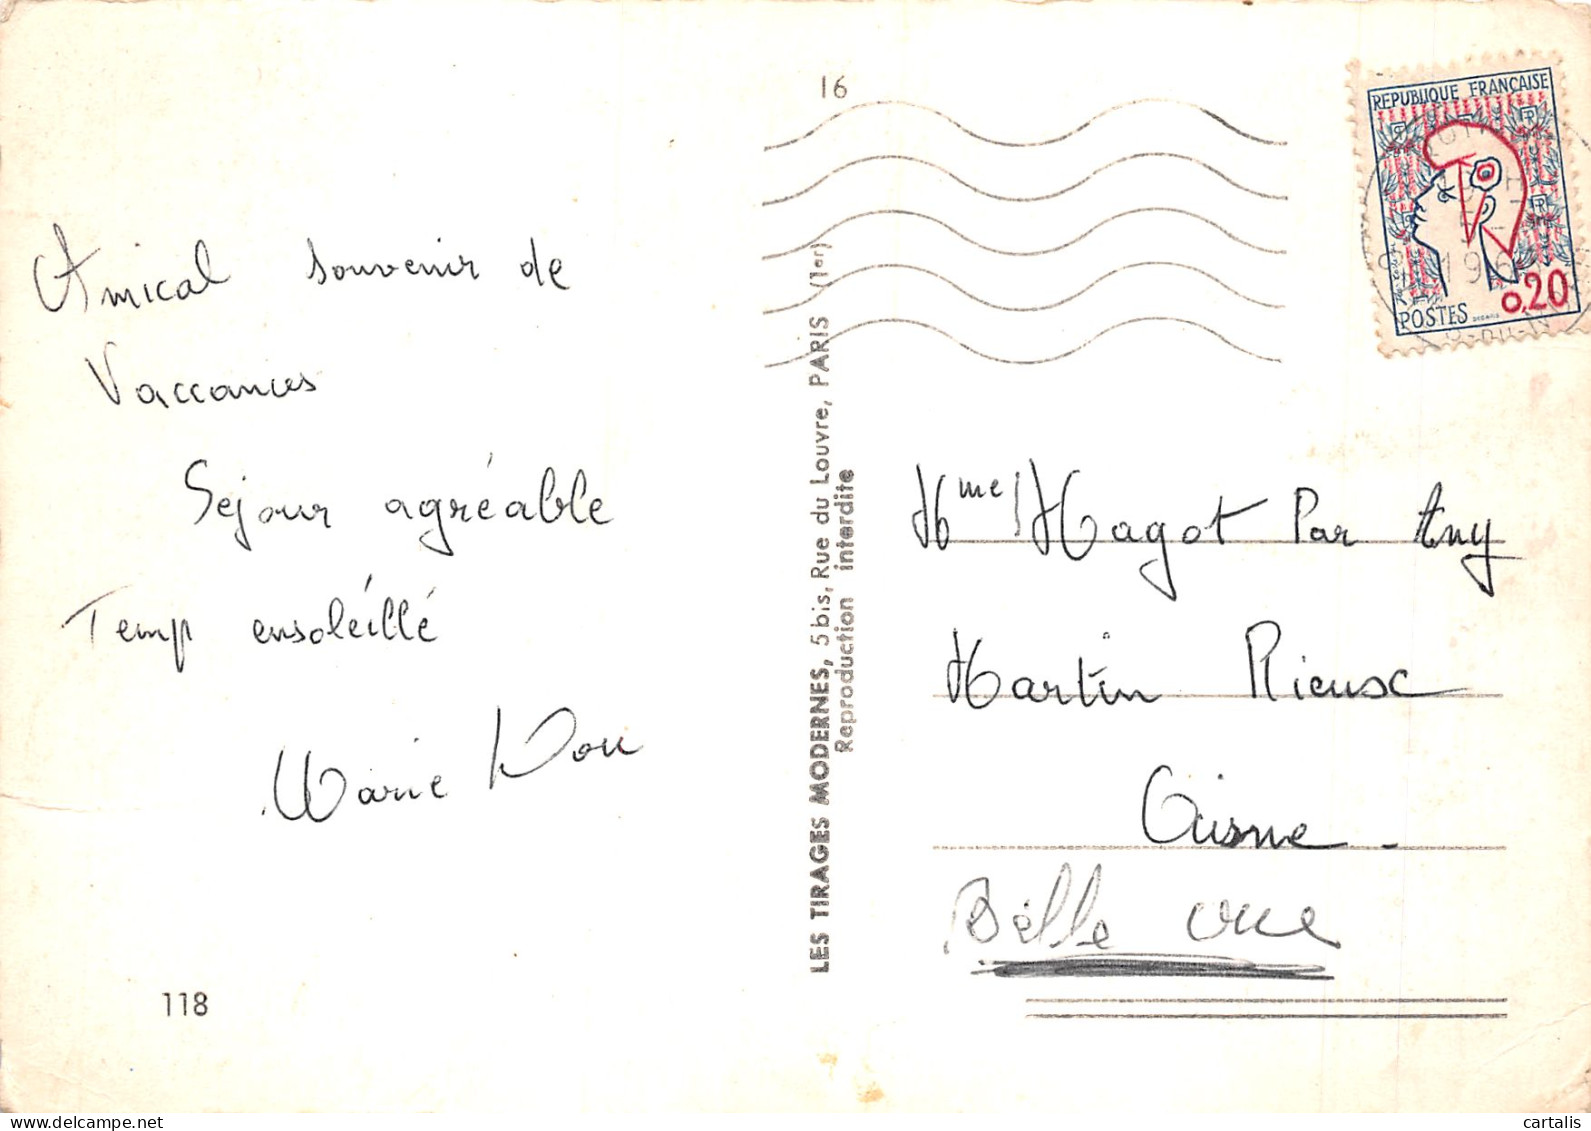 16
REPUBLIQUE FRANÇAISE
0,20
POSTES
Amical souvenir de
Vaccances
Séjour agréable
Temp ensoléillé
Marie Lou
118
LES TIRAGES MODERNES, 5 bis, Rue du Louvre, PARIS (1er)
Reproduction interdite
Mme Magot Par Any
Martin Rieux
Aisne -
Bélle vue
cartalis
delcampe.net